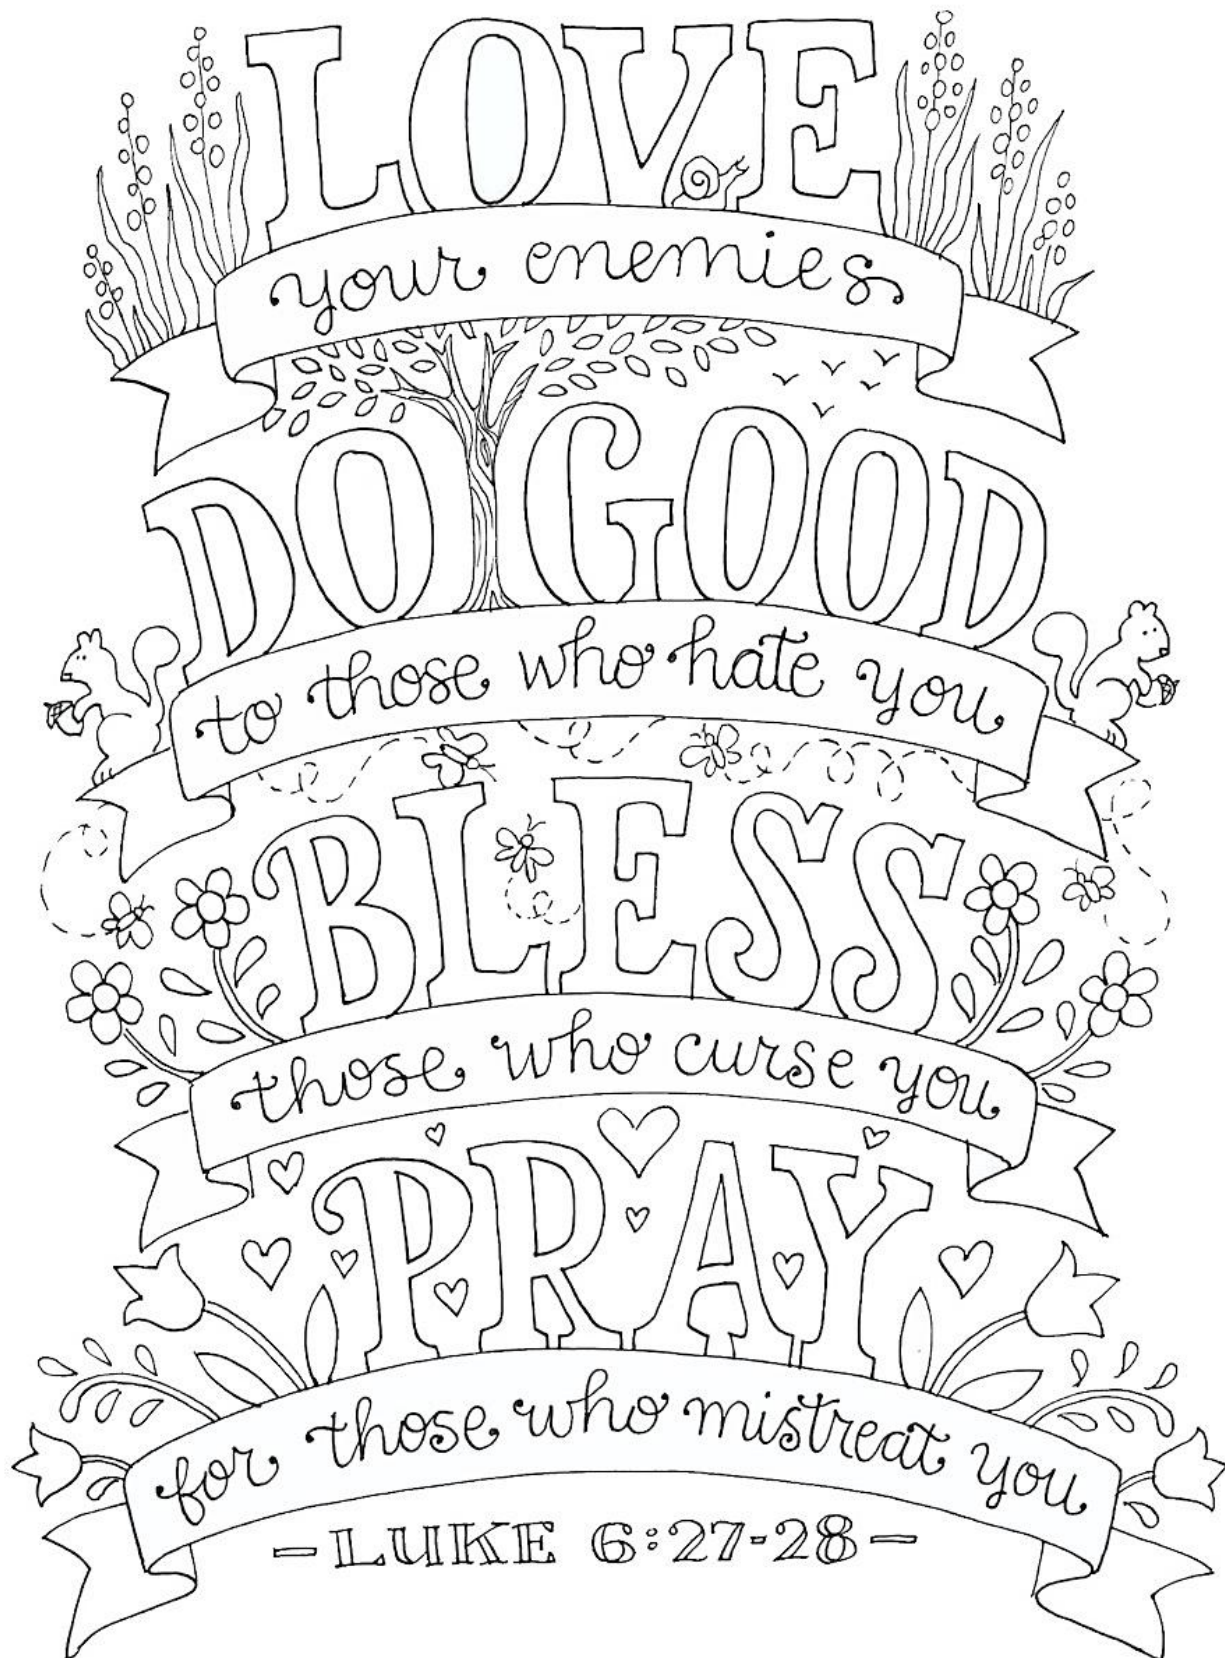 LOVE
your enemies
DO GOOD
to those who hate you
BLESS
those who curse you
PRAY
for those who mistreat you
-LUKE 6:27-28-